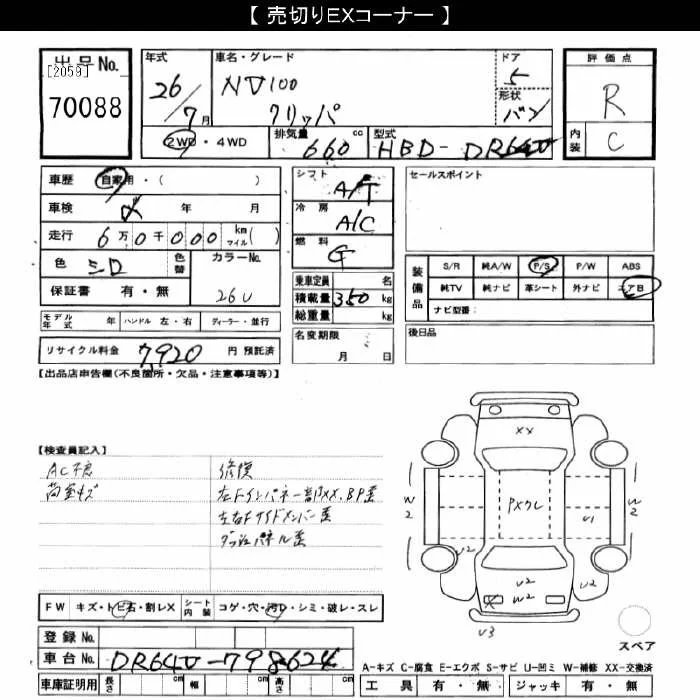 【 売切りEXコーナー 】
出品No.
[2059]
70088
年式
26/7月
車名・グレード
NV100
クリッパ
ドア
5
形状
バン
評価点
R
内装
C
2WD・4WD
排気量
660 cc
型式
HBD-DR64V
車歴
自家用・( )
車検
年 月
走行
6万0千000 km マイル( )
色
シロ
色替
カラーNo.
26U
保証書 有・無
モデル年式 年
ハンドル 左・右
ディーラー・並行
リサイクル料金
7,920
円 預託済
シフト
A/T
冷房
A/C
燃料
G
乗車定員 名
積載量 350 kg
総重量 kg
名変期限
月 日
セールスポイント
装備品
S/R 純A/W P/S P/W ABS
純TV 純ナビ 革シート 外ナビ エアB
ナビ型番:
後日品
【出品店申告欄(不良箇所・欠品・注意事項等)】
【検査員記入】
AC不良
荷室キズ
修復
左Fインパネ一部XX、BP歪
左右Fサイドメンバー歪
ダッシュパネル歪
XX
PXクレ
W2
W2
U1
U2
U2
U2
W2
X
U3
スペア
FW キズ・トビ石・割レX
シート内装 コゲ・穴・汚レ・シミ・破レ・スレ
登録No.
車台No. DR64V-798624
車庫証明用 長さ cm 幅 cm 高さ cm
A-キズ C-腐食 E-エクボ S-サビ U-凹ミ W-補修 XX-交換済
工具 有・無 ジャッキ 有・無